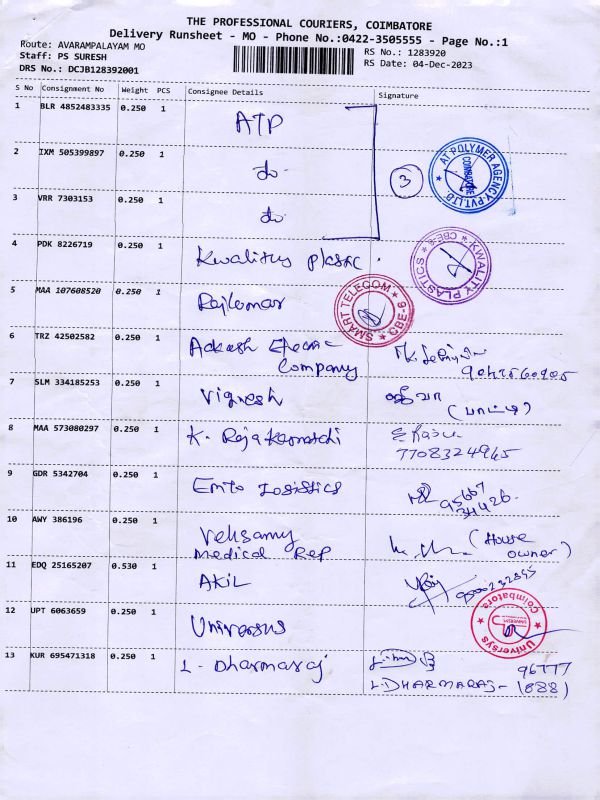 THE PROFESSIONAL COURIERS, COIMBATORE
Delivery Runsheet - MO - Phone No.:0422-3505555 - Page No.:1
Route: AVARAMPALAYAM MO
RS No.: 1283920
Staff: PS SURESH
RS Date: 04-Dec-2023
DRS No.: DCJB128392001
S No Consignment No Weight PCS Consignee Details Signature
1 BLR 4852483335 0.250 1 ATP
2 IXM 505399897 0.250 1 do
3 VRR 7303153 0.250 1 do
3
AT POLYMER AGENCY PVT.LTD
COIMBATORE
4 PDK 8226719 0.250 1 Kwality plastic
KWALITY PLASTICS CBE-6
5 MAA 107608520 0.250 1 Rajkumar
SMART TELECOM CBE-6
6 TRZ 42502582 0.250 1 Aakash
Company
7 SLM 334185253 0.250 1 Vignesh
(பாட்டி)
8 MAA 573080297 0.250 1 K. Rajakamatchi
7708324945
9 GDR 5342704 0.250 1 Emito Logistics
10 AWY 386196 0.250 1 Velusamy
Medical Rep
(House
owner)
11 EDQ 25165207 0.530 1 AKIL
12 UPT 6063659 0.250 1 Universus
Universys Coimbatore
13 KUR 695471318 0.250 1 L. Dharmaraj
96777
L.DHARMARAJ - 1888)